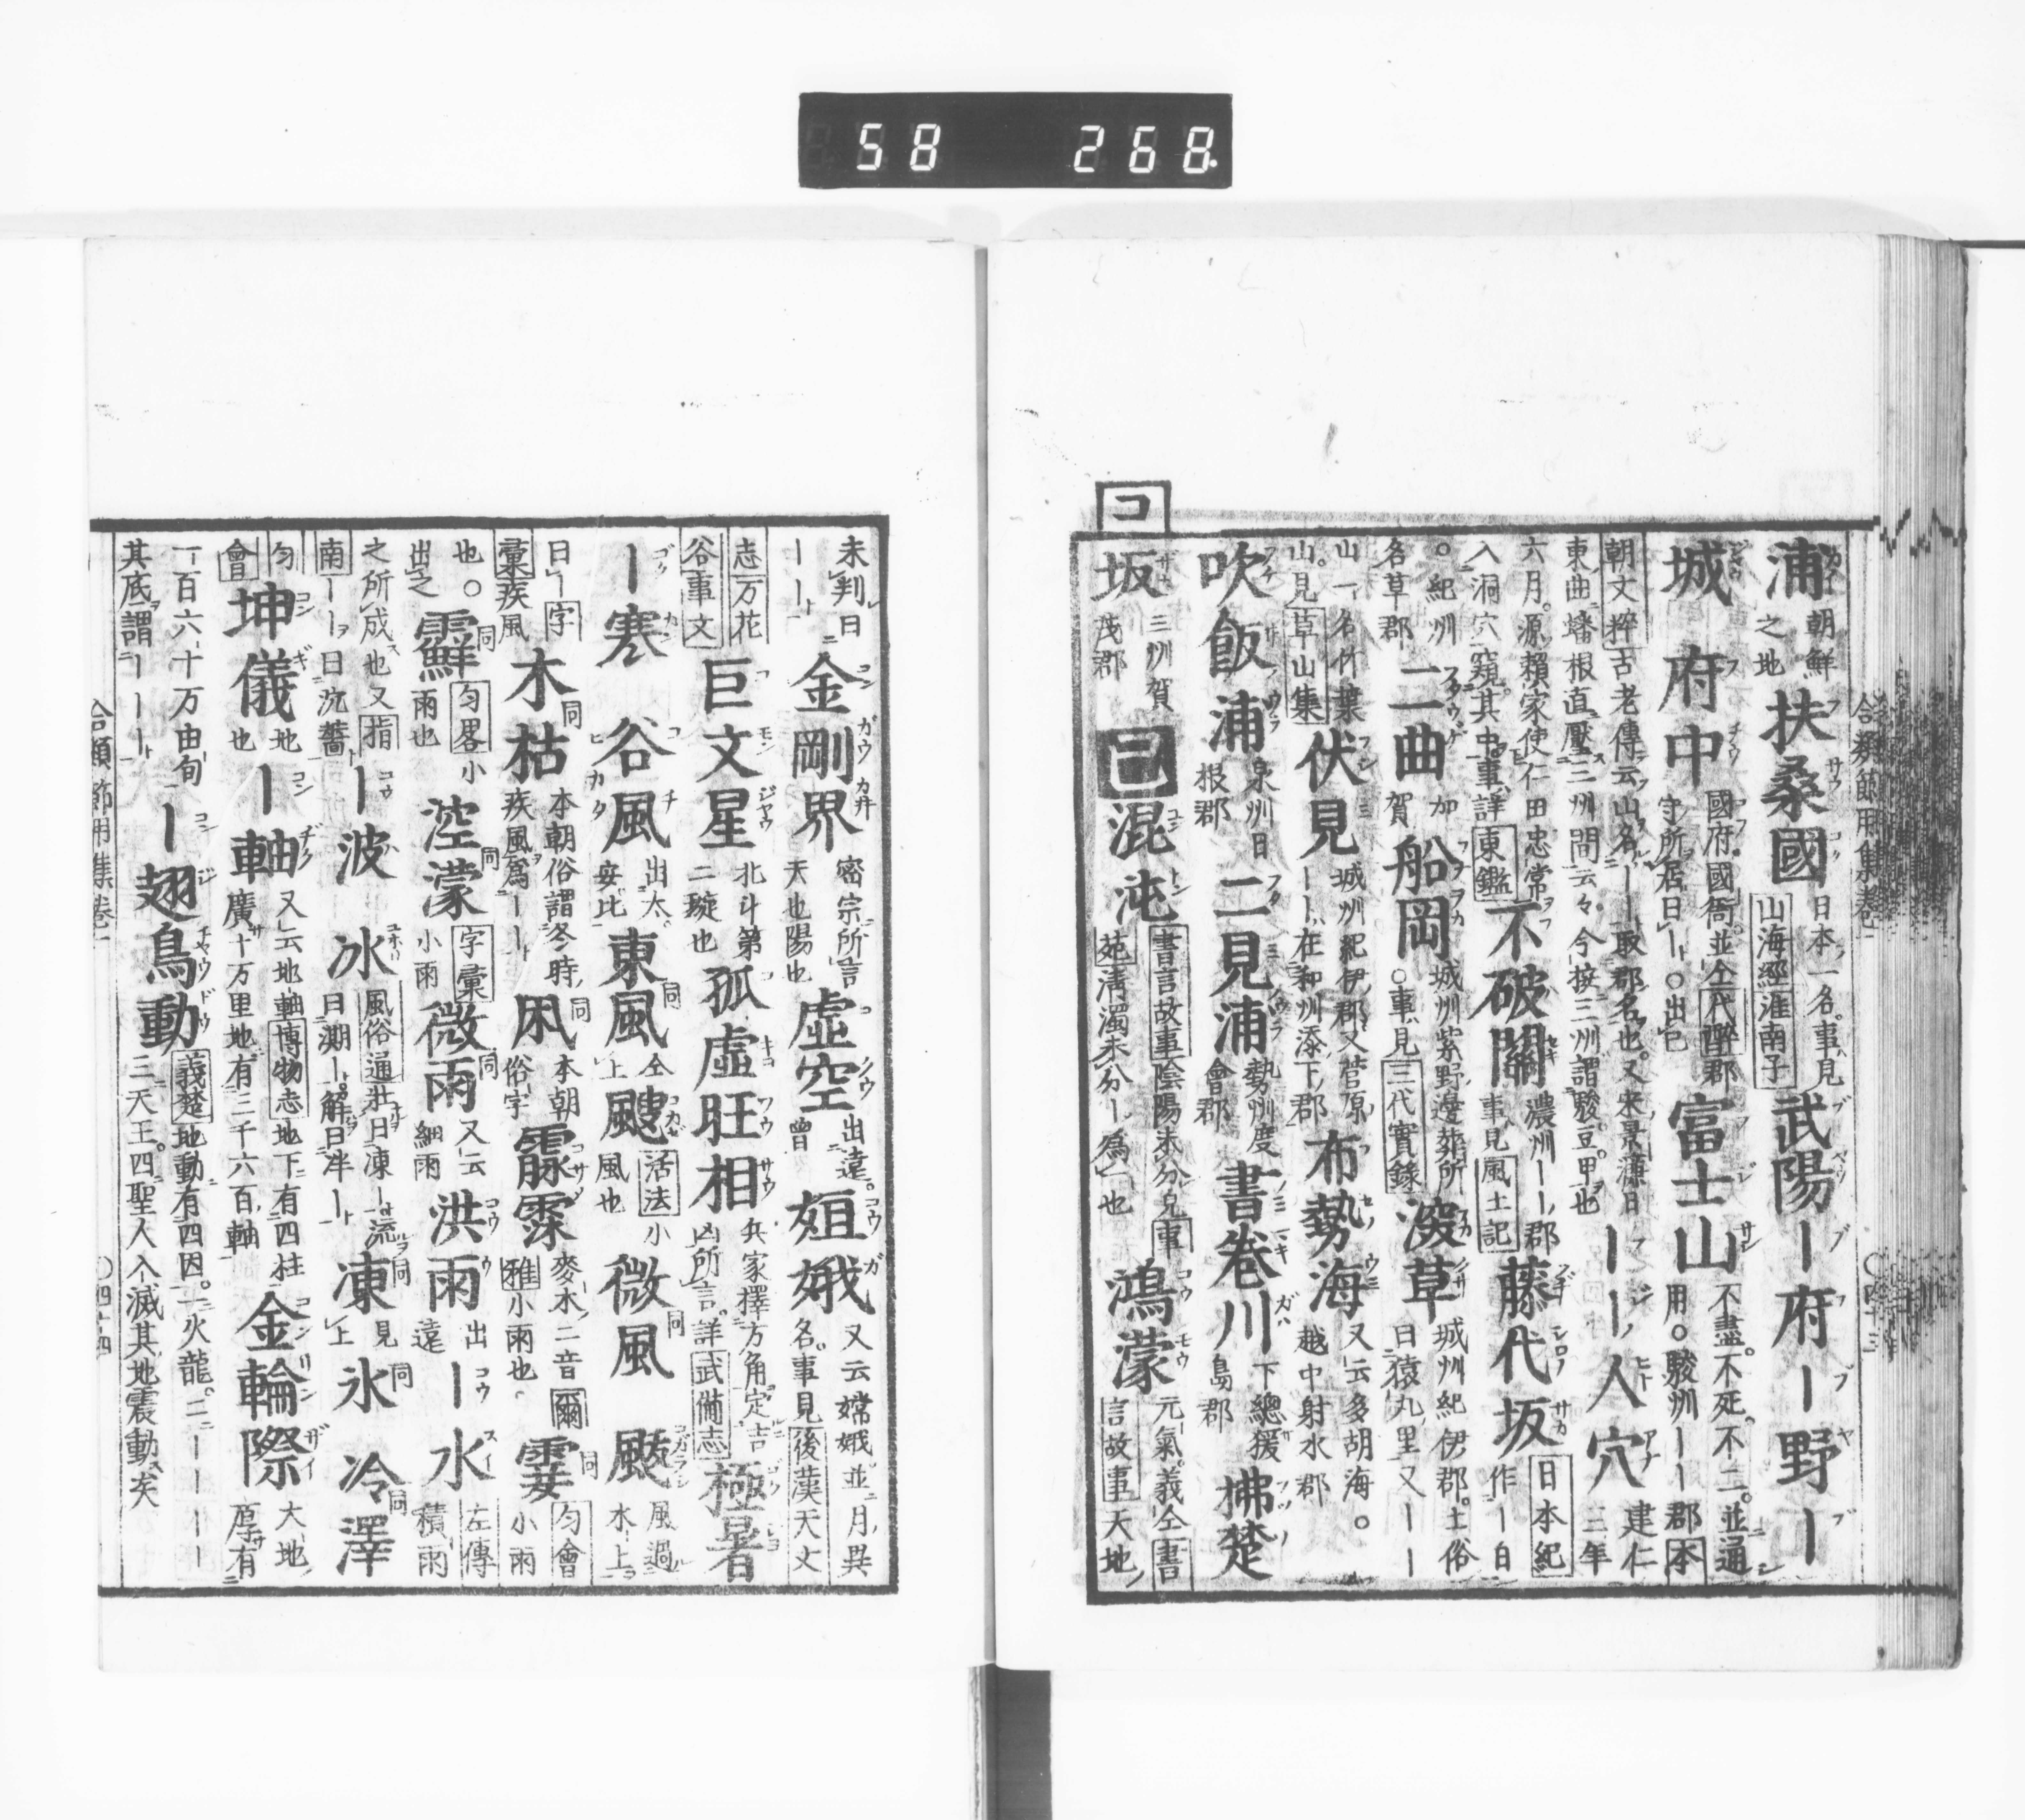 58 268
合類節用集卷一
〇四十三
浦 朝鮮之地 扶桑國 日本ノ一名事見山海經淮南子 武陽ー府ー野ー
城 府中 國府國衙並仝代醉郡守所居曰ー〇出巳 富士山 不盡不死不二並通用〇駿州ーー郡本
朝文粹古老傳云山名ーー取郡名也又宋景濂曰東曲蟠根直壓三州間云々今按三州謂駿豆甲也 ーー人穴 建仁三年
六月源賴家使仁田忠常入洞穴窺其中事詳東鑑 不破關 濃州ーー郡事見風土記 藤代坂 日本紀作ー白
〇紀州名草郡 二曲 加賀 船岡 城州紫野邊葬所〇事見三代實錄 深草 城州紀伊郡土俗曰猿丸里又ーー
山一名竹葉山見草山集 伏見 城州紀伊郡又菅原ーー在和州添下郡 布勢海 又云多胡海〇越中射水郡
吹飯浦 泉州日根郡 二見浦 勢州度會郡 書卷川 下總猨島郡 拂楚
コ
坂 三州賀茂郡 コ 混沌 書言故事陰陽未分兄事苑淸濁未分ー爲也 鴻濛 元氣義仝書言故事天地
未判曰ーー 金剛界 密宗所言天也陽也 虛空 出遠曾 姮娥 又云嫦娥並月異名事見後漢天文
志万花谷事文 巨文星 北斗第二璇也 孤虛旺相 兵家擇方角定吉凶所言詳武備志 極暑
ー寒 谷風 出太安比 東風 仝上 颼 活法小風也 微風 颷 風過木上
曰ー字彙疾風 木枯 本朝俗謂冬時疾風爲ーー 凩 本朝俗字 霢霂 麥木二音爾雅小雨也 霎 匀會小雨
也〇出之 霹 匀畧小雨也 涳濛 字彙小雨 微雨 又云細雨 洪雨 出遠 ー水 左傳積雨
之所成也又指南ーー曰沉薔 ー波 氷 風俗通壯曰凍ー流曰澌ー解曰泮ー 凍 見上 氷 冷澤
匀會 坤儀 地也 ー軸 又云地軸博物志地下有四柱廣十万里地有三千六百軸 金輪際 大地厚有
一百六十万由旬 ー翅鳥動 義楚地動有四因一火龍二ーーー
其底謂ーーー 三天王四聖人入滅其地震動矣
合類節用集卷一
〇四十四